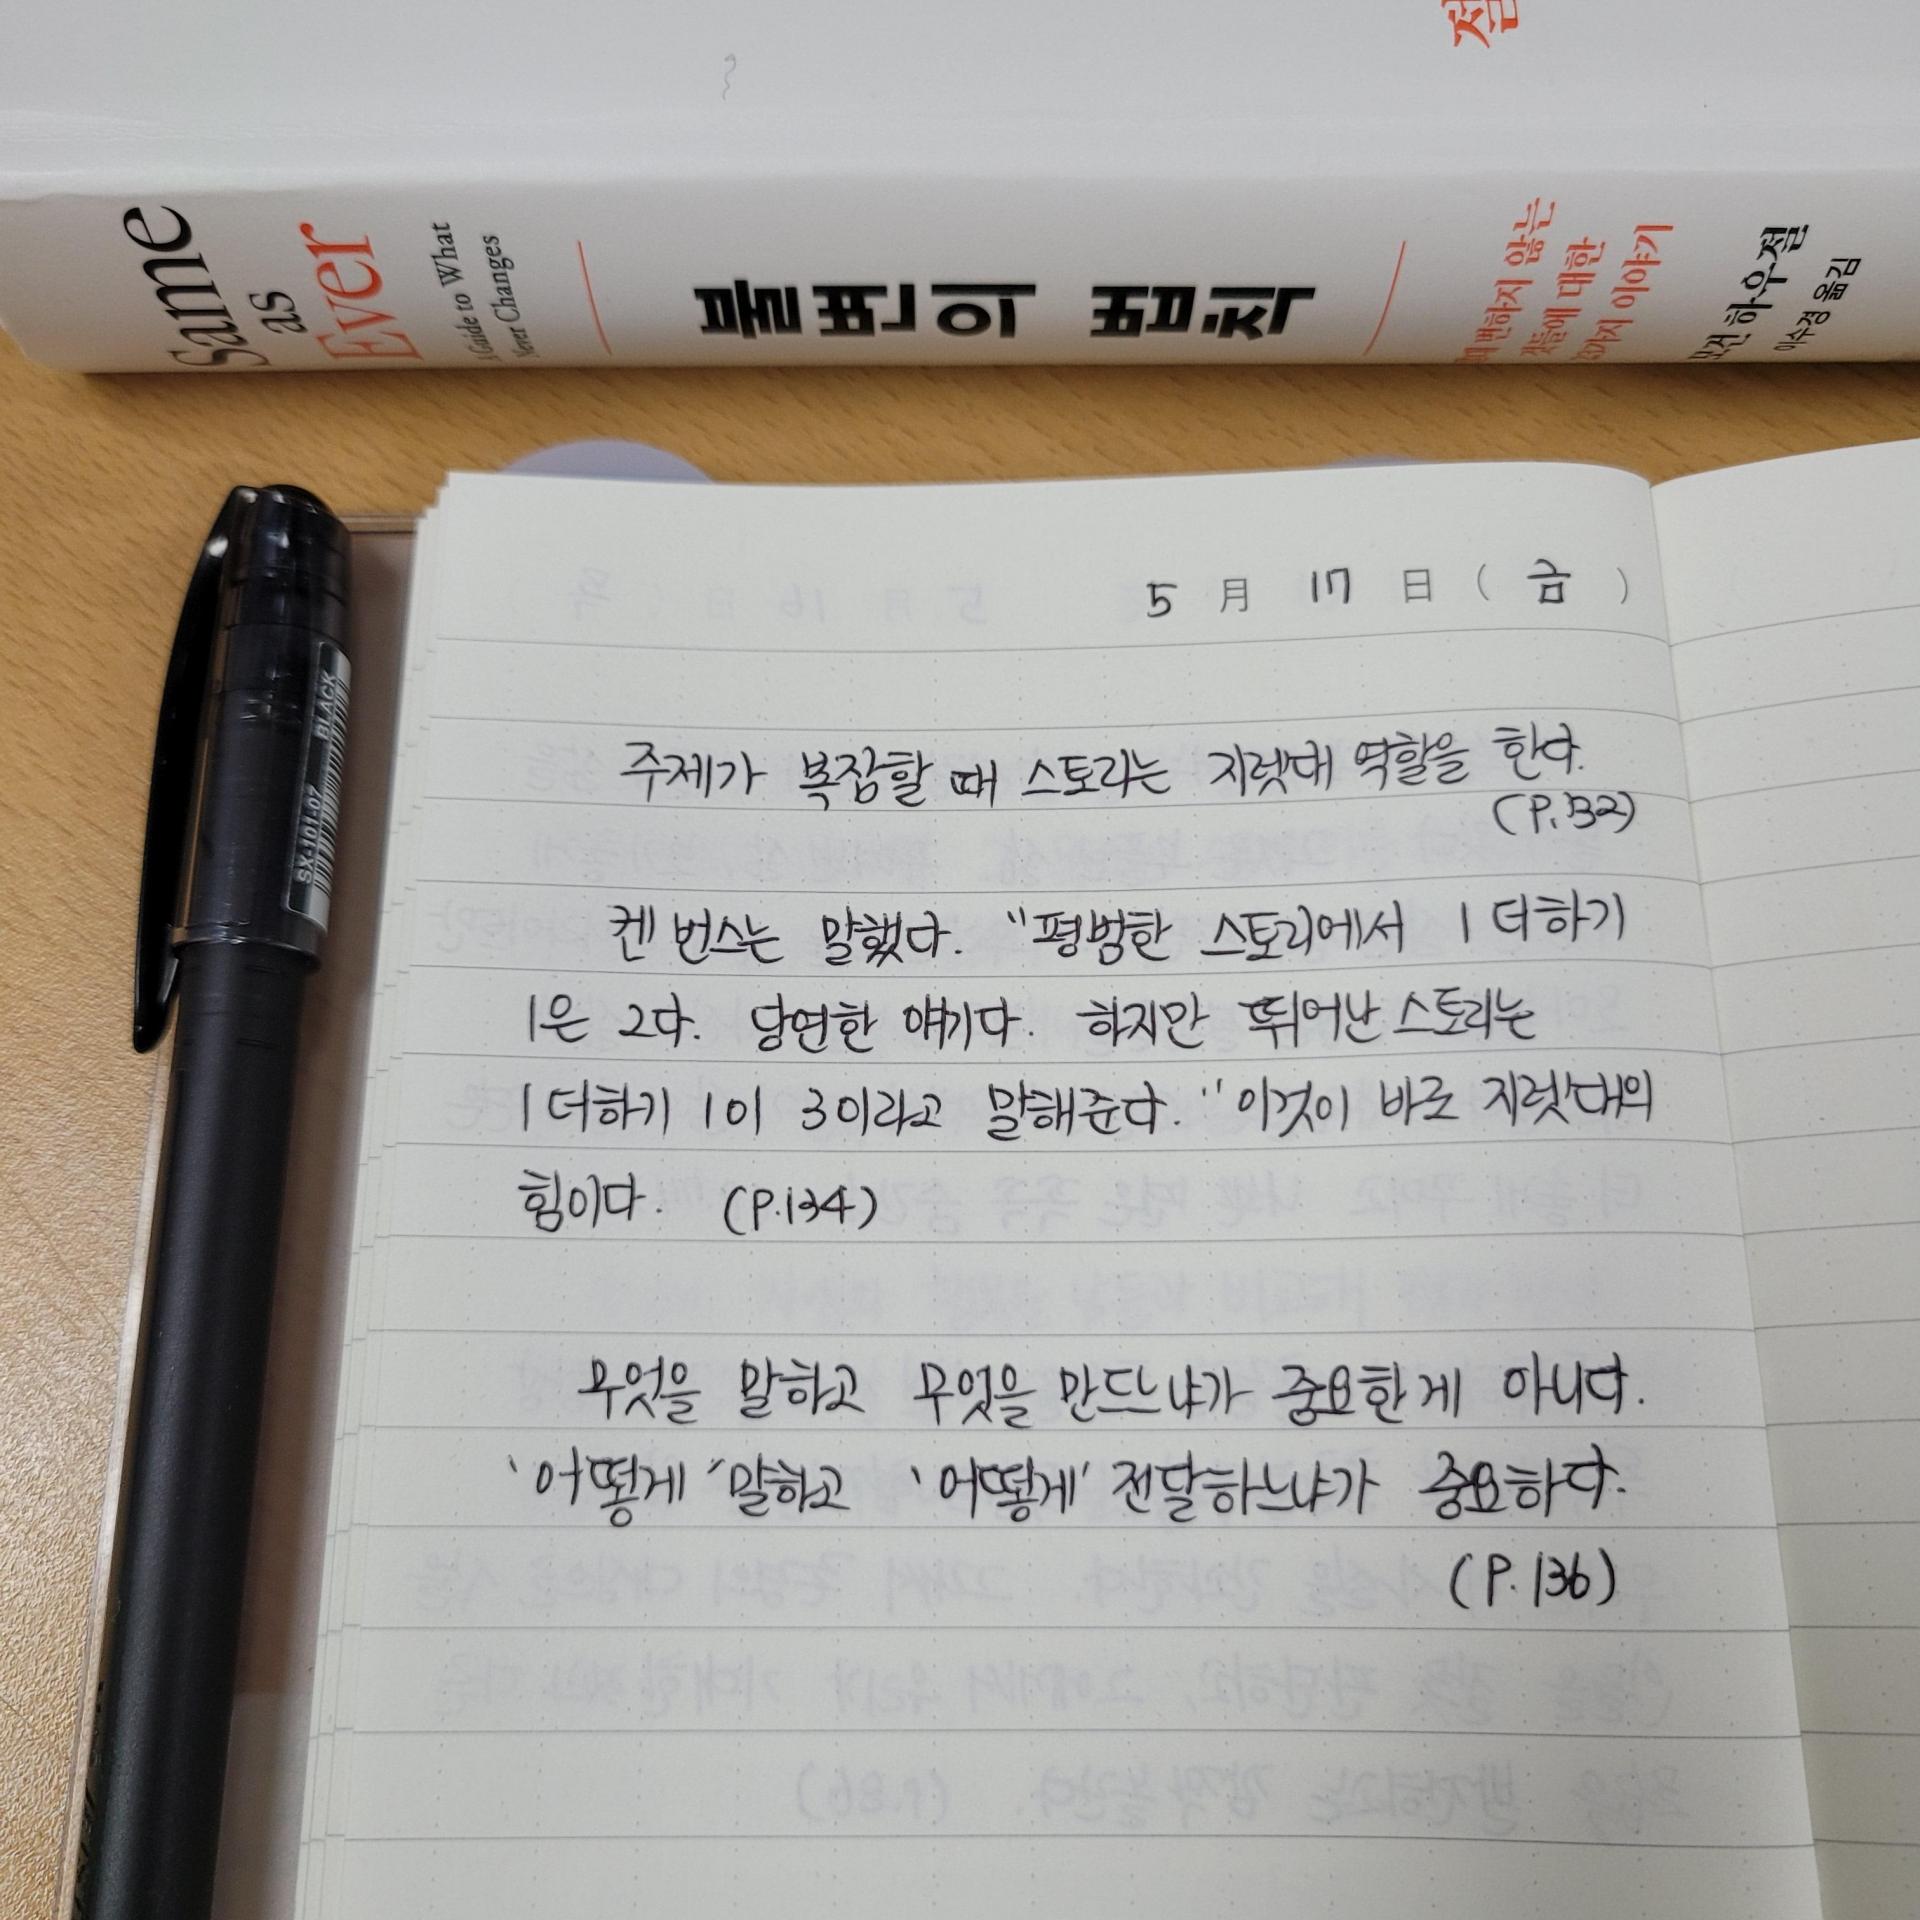 Same
as
Ever
A Guide to What
Never Changes
불변의 법칙
변하지 않는
것들에 대한
23가지 이야기
모건 하우절
이수경 옮김
BLACK
SX-101-07
5 月 17 日 ( 금 )
주제가 복잡할 때 스토리는 지렛대 역할을 한다.
(P.132)
켄 번스는 말했다. "평범한 스토리에서 1 더하기
1은 2다. 당연한 얘기다. 하지만 뛰어난 스토리는
1 더하기 1이 3이라고 말해준다." 이것이 바로 지렛대의
힘이다. (P.134)
무엇을 말하고 무엇을 만드느냐가 중요한게 아니다.
'어떻게' 말하고 '어떻게' 전달하느냐가 중요하다.
(P.136)